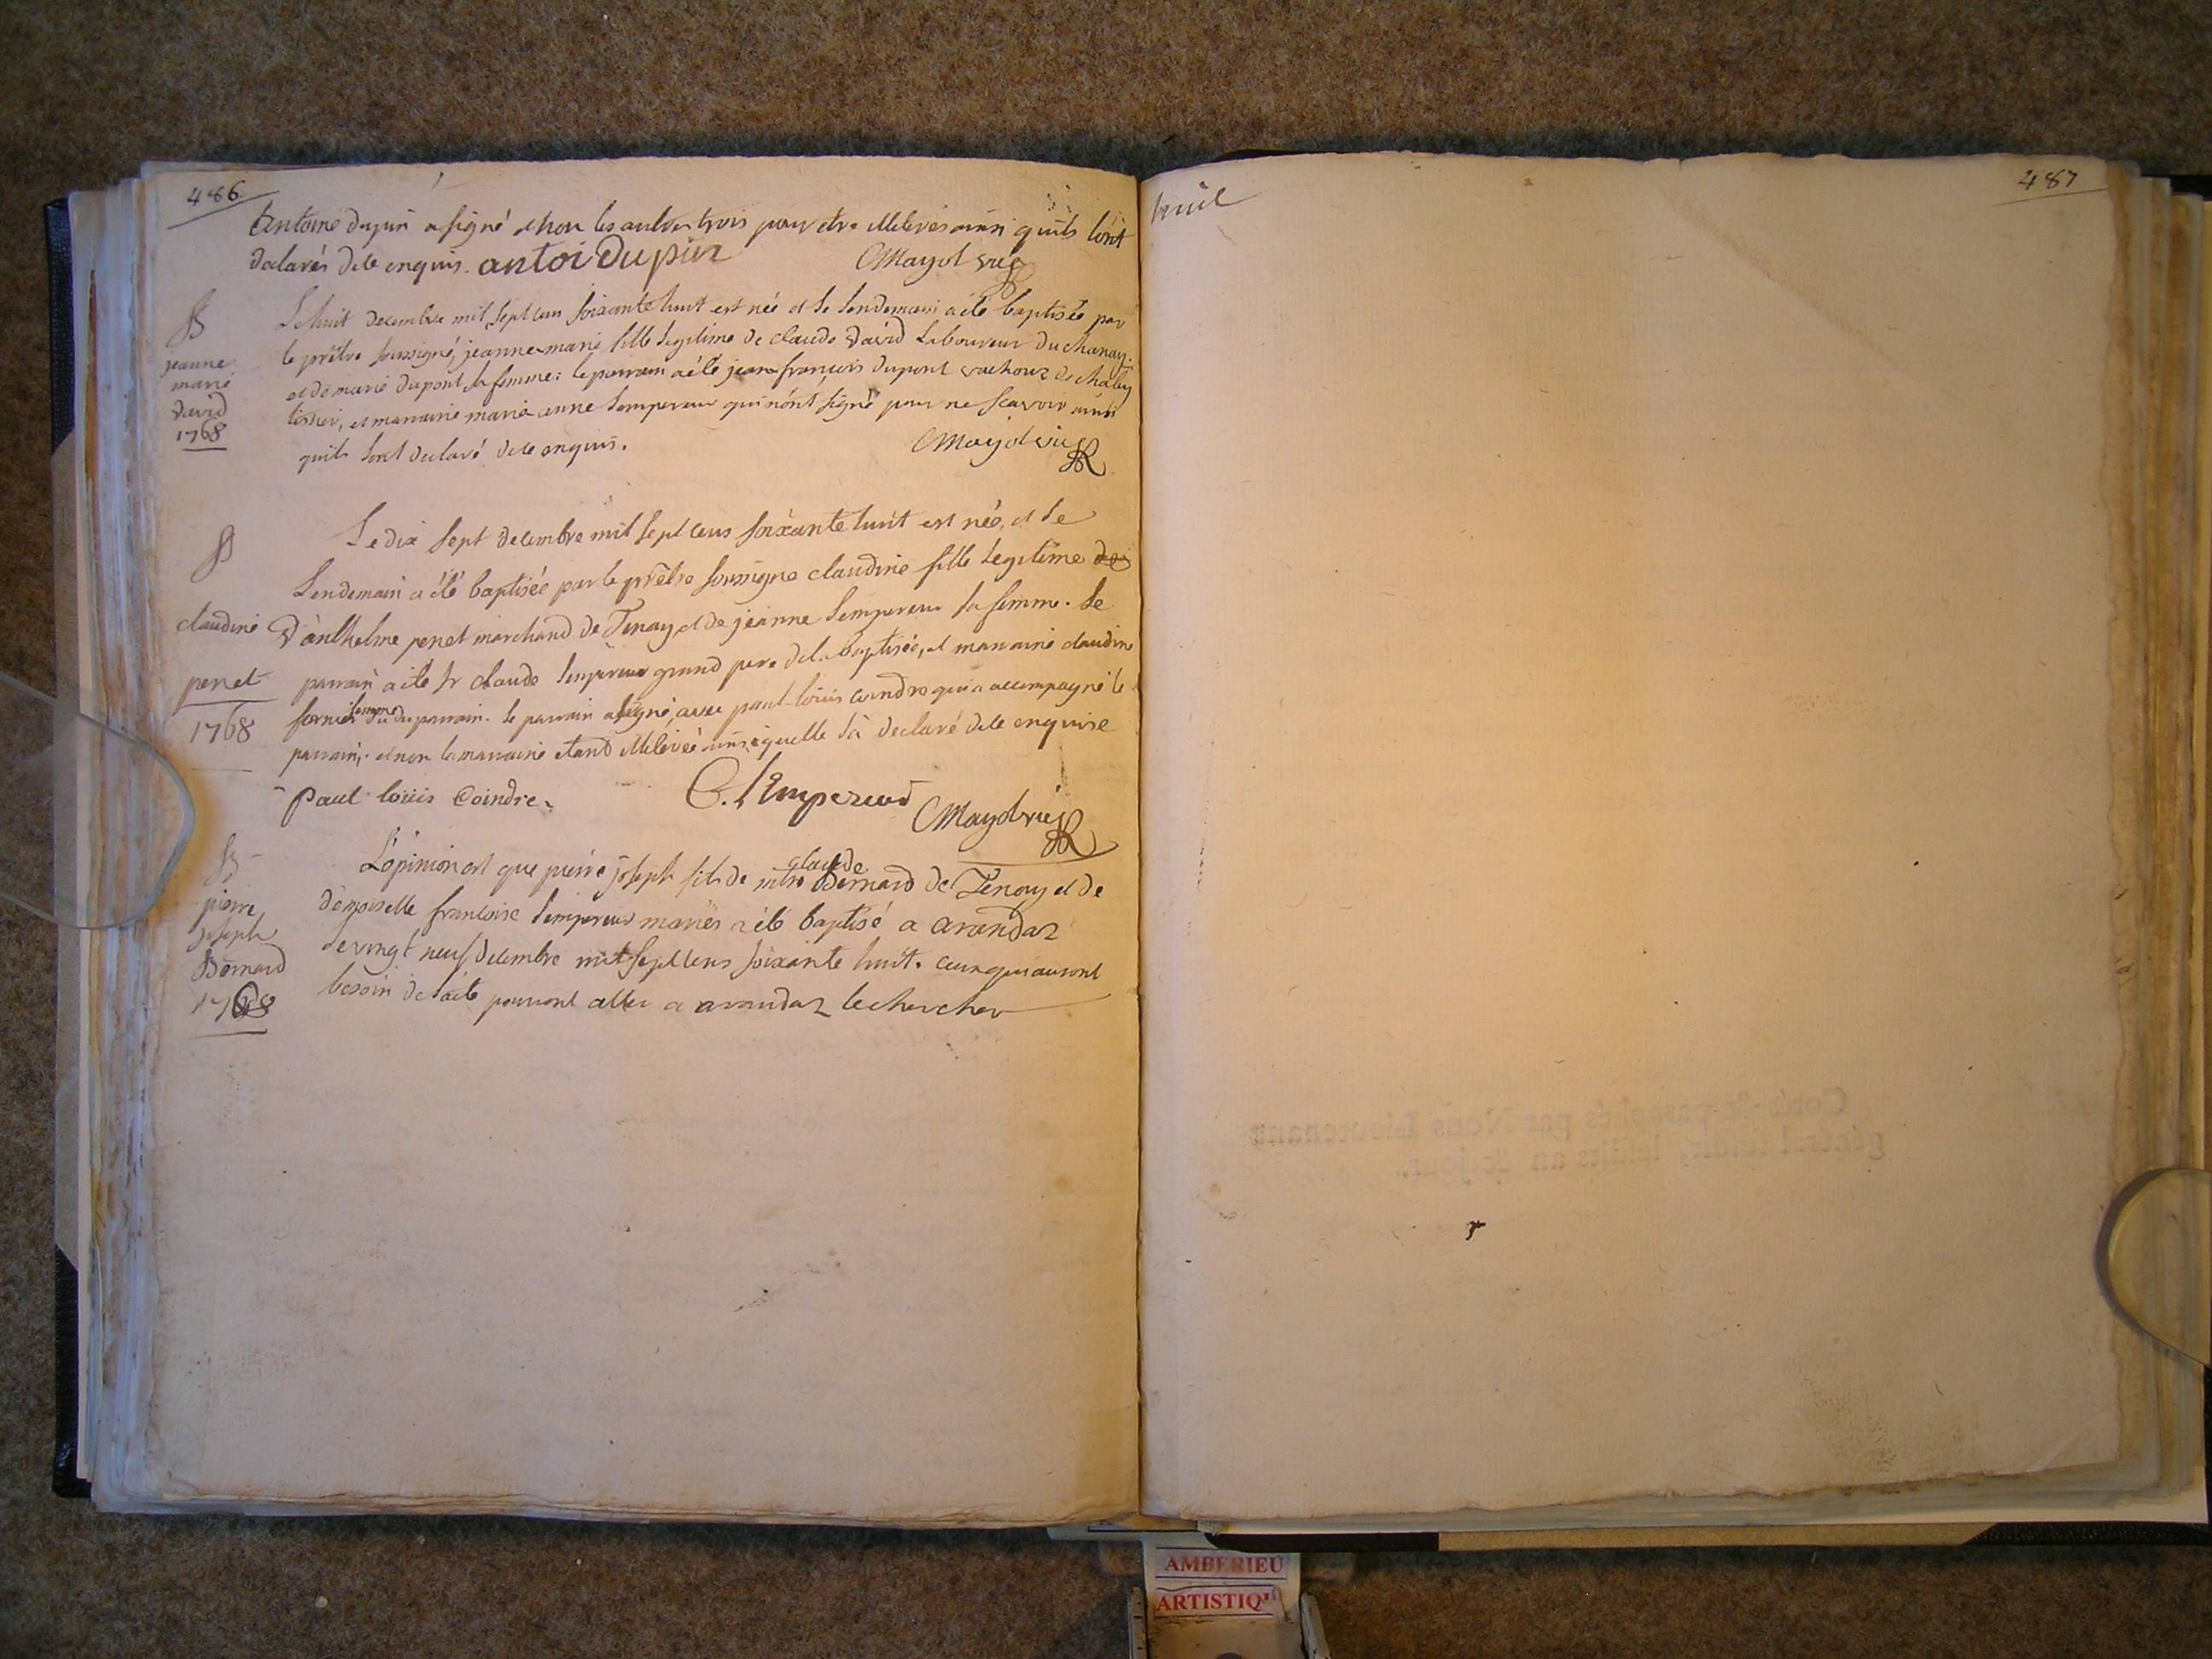 486
Antoine dupin a signé et non les autres trois pour etre illeterés ainsi quils l'ont
declarés de ce enquis. antoi Dupin Mayol vic
B
jeanne
marie
david
1768
Le huit decembre mil sept cens soixante huit est née et le lendemain a été baptisée par
le prêtre soussigné, jeanne marie fille legitime de claude david laboureur du chanay.
et de marie dupont sa femme: le parrain a été jean françois dupont de chaley
et marraine marie anne lempereur qui n'ont signé pour ne scavoir ainsi
quils l'ont declaré de ce enquis. Mayol vic
B
claudine
penet
1768
Le dix sept decembre mil sept cens soixante huit est née, et le
lendemain a été baptisée par le prêtre soussigné claudine fille legitime de
d'anthelme penet marchand de Tenay et de jeanne lempereur sa femme. le
parrain a été sr claude lempereur grand pere de la baptisée, et marraine claudine
fornier femme du parrain. le parrain a signé, avec paul louis coindre qui a accompagné le
parrain; et non la marraine etant illeterée ainsi quelle l'a declaré de ce enquise
Paul louis Coindre. C. lEmpereur Mayol vic
B
pierre
joseph
Bernard
1768
L'opinion est que pierre joseph fils de claude Bernard de Tenay et de
demoiselle francoise lempereur mariés a été baptisé a arandaz
le vingt neuf decembre mil sept cens soixante huit. ceux qui auront
besoin de l'acte pourront aller a arandaz le chercher
huit
487
Cotés & paraphés par Nous Lieutenant
général susdit, lesdits an & jour.
AMBERIEU
ARTISTIQ